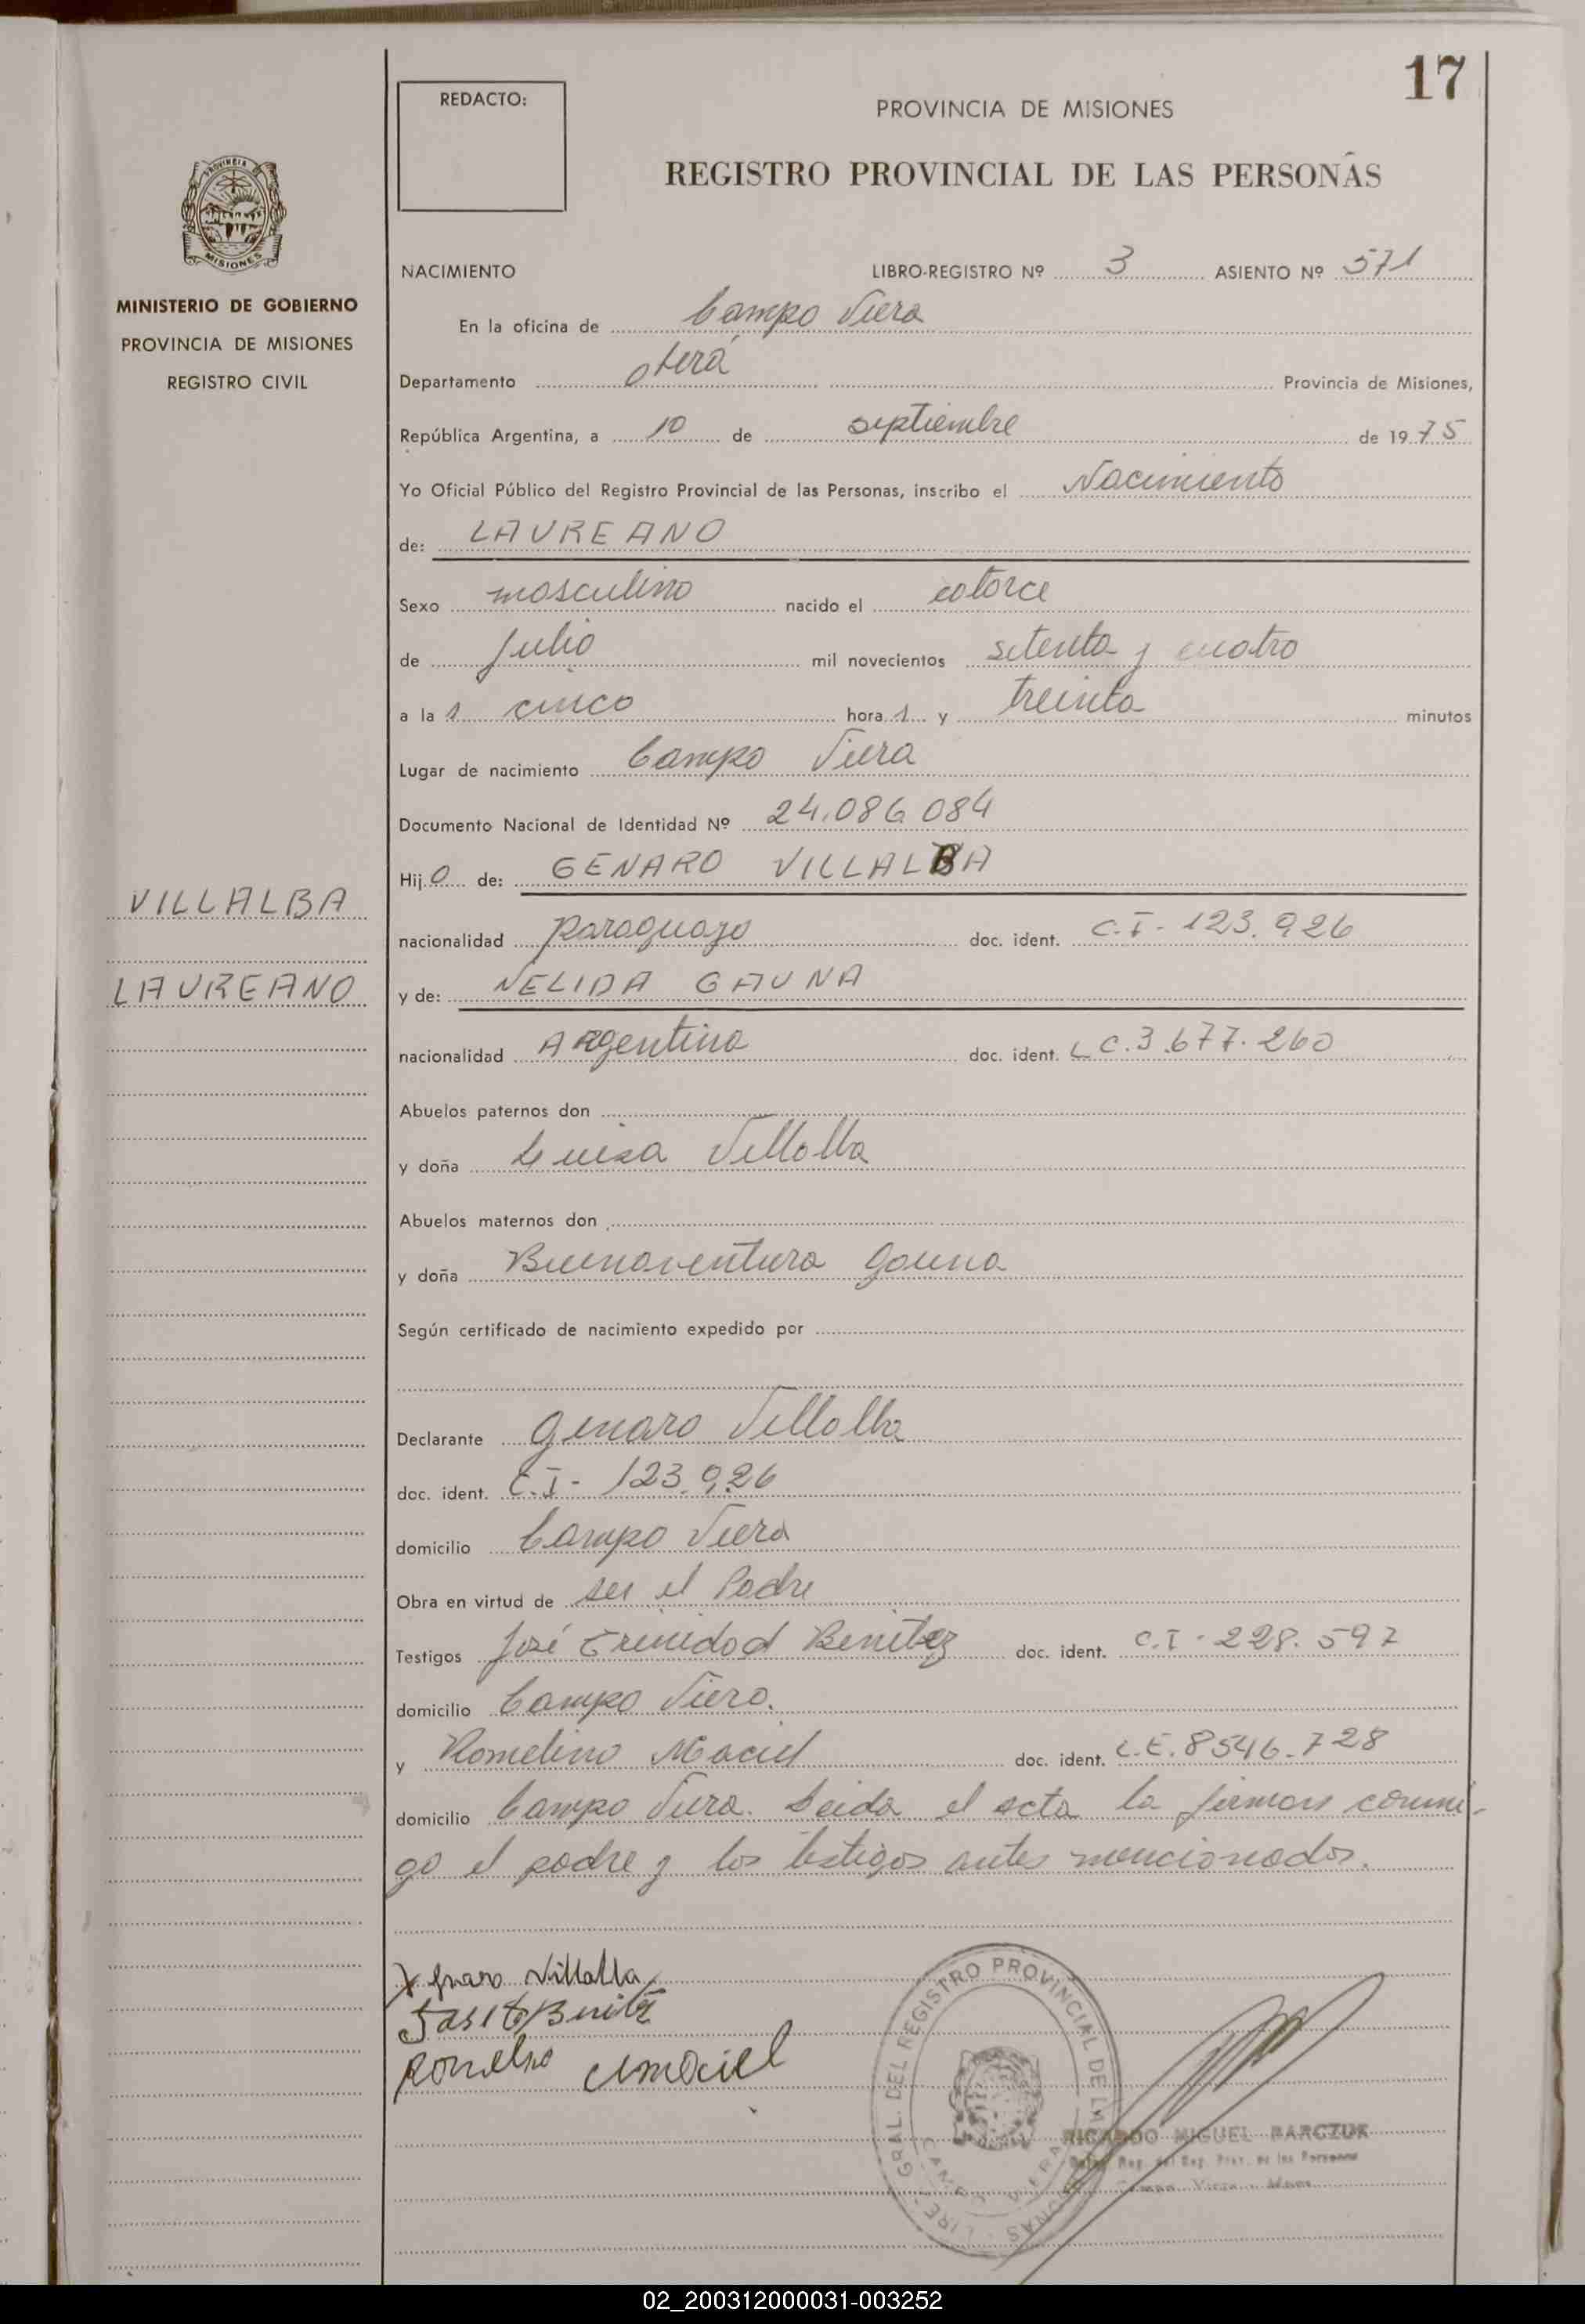 17
REDACTO:
PROVINCIA DE MISIONES
REGISTRO PROVINCIAL DE LAS PERSONAS
PROVINCIA
MISIONES
MINISTERIO DE GOBIERNO
PROVINCIA DE MISIONES
REGISTRO CIVIL
NACIMIENTO LIBRO-REGISTRO Nº 3 ASIENTO Nº 571
En la oficina de Campo Viera
Departamento Oberá Provincia de Misiones,
República Argentina, a 10 de septiembre de 1975
Yo Oficial Público del Registro Provincial de las Personas, inscribo el Nacimiento
de: LAUREANO
Sexo masculino nacido el catorce
de Julio mil novecientos setenta y cuatro
a la s cinco hora s y treinta minutos
Lugar de nacimiento Campo Viera
Documento Nacional de Identidad Nº 24.086.084
Hijo de: GENARO VILLALBA
VILLALBA
nacionalidad Paraguayo doc. ident. C.I- 123.926
LAUREANO
y de: NELIDA GAUNA
nacionalidad Argentina doc. ident. L C.3.677.260
Abuelos paternos don
y doña Luisa Villalba
Abuelos maternos don
y doña Buenaventura Gauna
Según certificado de nacimiento expedido por
Declarante Genaro Villalba
doc. ident. C.I- 123.926
domicilio Campo Viera
Obra en virtud de ser el Padre
Testigos José Trinidad Benitez doc. ident. C.I - 228.597
domicilio Campo Viera.
y Romelino Maciel doc. ident. L.E. 8546.728
domicilio Campo Viera. Leida el acta la firman conmi-
go el padre y los testigos antes mencionados.
Villalba
Maciel
GRAL. DEL REGISTRO PROVINCIAL DE LAS PERSONAS
CAMPO VIERA
RICARDO MIGUEL BARCZUK
Reg. Prov. de las Personas
Campo Viera - Mnes.
02_200312000031-003252